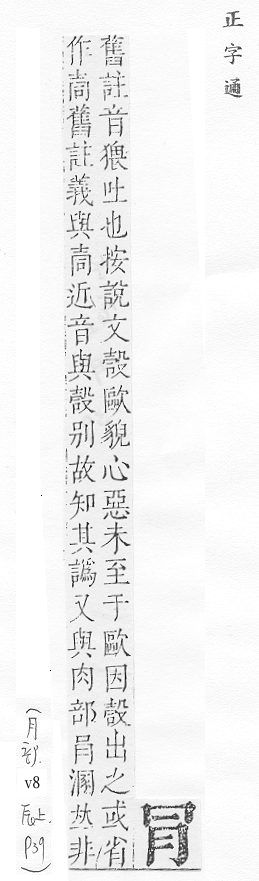 正字通
舊註音猥吐也按說文嗀歐貌心惡未至于歐因嗀出之或省
作舊註義與近音與嗀別故知其譌又與肉部肙溷𠀤非
(月部.
v8
上.
p39)